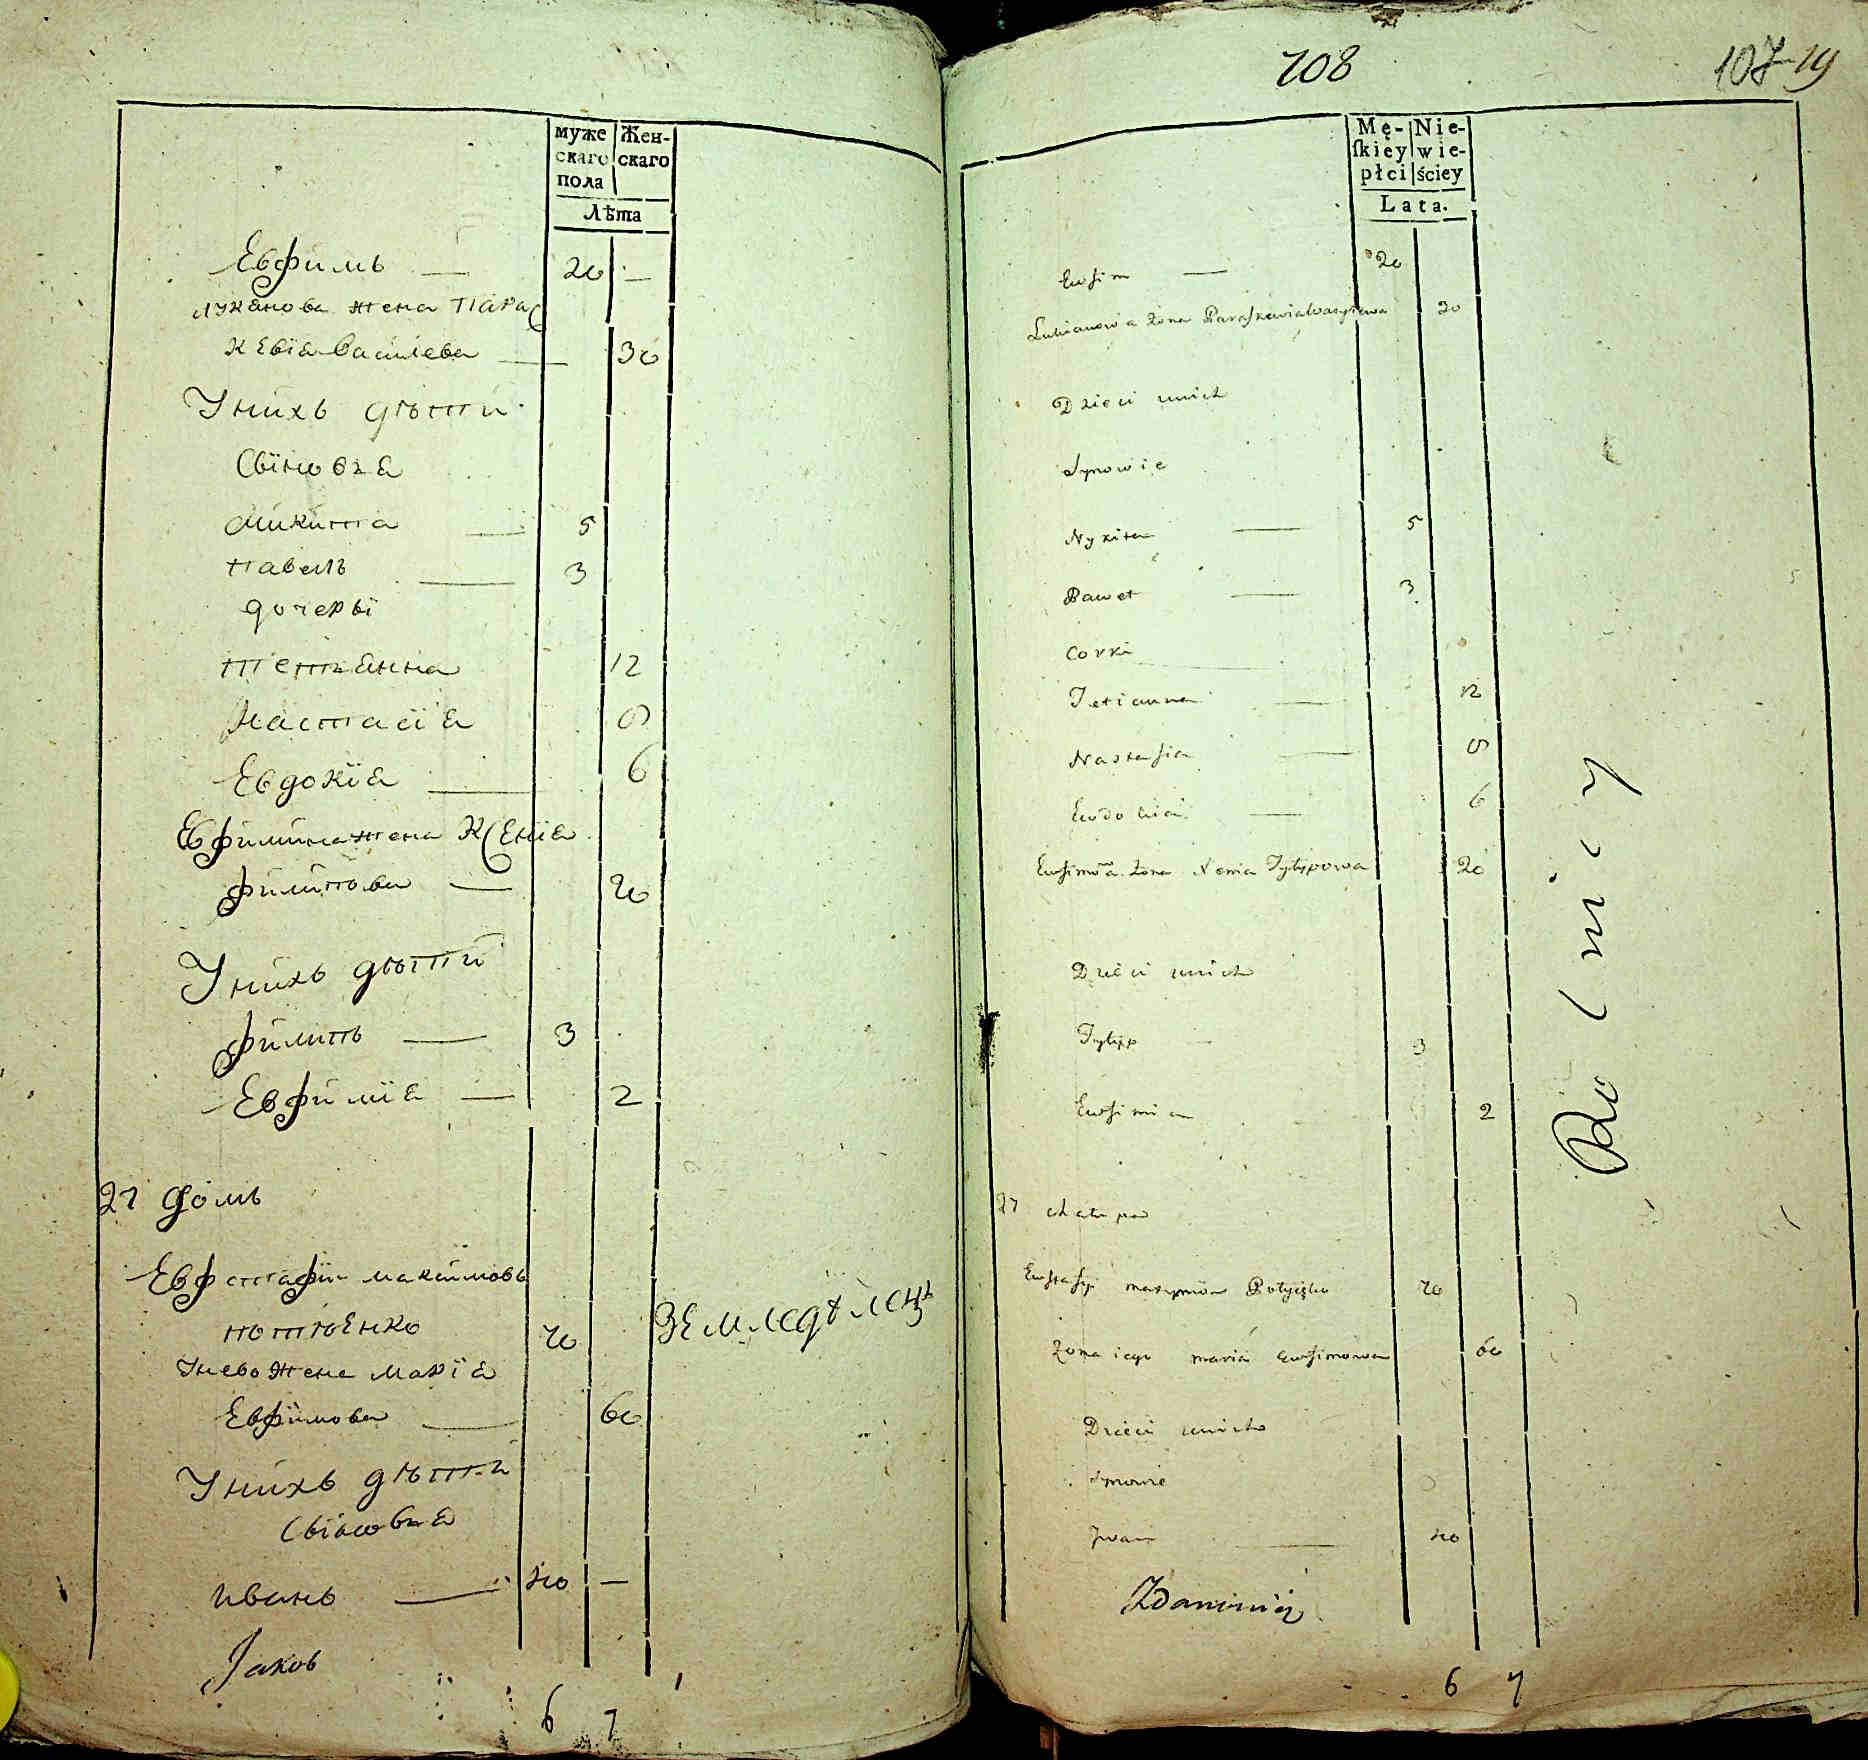 муже Жен-
скаго скаго
пола
Лѣта
Евфимъ — 20 —
Лукянова жена Парас
кевія Василева — 30
У нихъ дѣти
Сыновя
Микита — 5
Павелъ — 3
дочеры
Тетянна 12
Настасія 9
Евдокія — 6
Евфимина жена Ксенія
Филипова — 20
У нихъ дѣти
Филипъ — 3
Евфимія — 2
27 домъ
Евфстафій Максимовъ
70 Земледѣлецъ
У нево жена Марія
Евфимова — 60
У нихъ дѣти
Сыновя
Иванъ — 40 —
Яковъ
6 7
108 107 19
Mę- Nie-
ſkiey wie-
płci ściey
Lata.
Eufim — 20
Lukianowa żona Paraskewia Wasylewa 30
Dzieci unich
Synowie
Nykita — 5
Paweł — 3
Corki
Tetianna — 12
Nastasia — 9
Eudokia — 6
Eufimowa żona Xenia Fylypowa 20
Dzieci unich
Fylyp — 3
Eufimia 2
27 chałupa
Eustafy Maxymow 70
Zona iego Maria Eufimowa 60
Dzieci unich
Synowie
Iwan — 40
6 7
Rolnicy